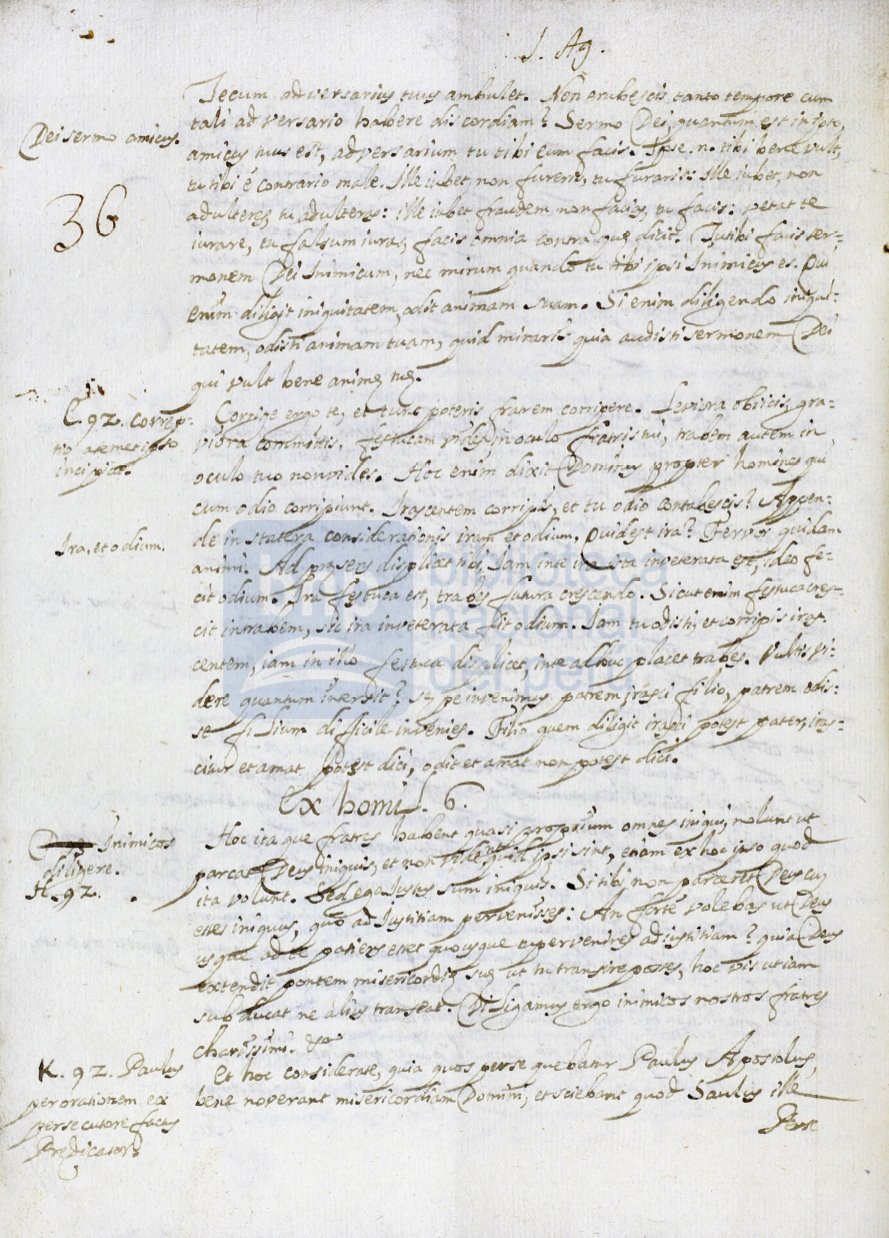 J. Ag.
Tecum adversarius tuus ambulet. Non erubescis tanto tempore cum
Dei sermo amicus.
tali adversario habere discordiam? Sermo Dei, quantum est in ipso,
amicus tuus est, adversarium tu tibi eum facis. Ipse .n. tibi bene vult,
36
tu tibi è contrario male. Ille iubet, non furere, tu furaris: ille iubet, non
adulteres, tu adulteras: ille iubet fraudem non facias, tu facis: vetat te
iurare, tu falsum iuras, facis omnia contra quę dicit. Tu tibi facis ser-
monem Dei Inimicum, nec mirum quando tu tibi ipsi Inimicus es. Qui
enim diligit iniquitatem, odit animam suam. Si enim diligendo iniqui-
tatem, odisti animam tuam, quid miraris quia audisti sermonem Dei
qui vult bene animę tuę.
C. 92. Correp-
tio a semet ipso
incipiat.
Corripe ergo te, et tunc poteris fratrem corripere. Leviora obiicis, gra-
viora committis, festucam vides in oculo fratris tui, trabem autem in
oculo tuo non vides. Hoc enim dixit Dominus propter homines qui
cum odio corripiunt. Irascentem corripis, et tu odio contabescis? Appen-
Ira, et odium.
de in statera considerationis iram et odium. Quid est ira? Fervor quidam
animi. Ad præsens displicet tibi, Iam in te ira ista inveterata est, ideo fe-
cit odium. Ira festuca est, trabes futura crescendo. Sicut enim festuca cres-
cit in trabem, sic ira inveterata fit odium. Iam tu odisti, et corripis iras-
centem, iam in illo festuca displicet, in te adhuc placet trabes. Vultis vi-
dere quantum intersit? Sępe invenimus patrem irasci filio, patrem odis-
se filium difficile invenies. Filio quem diligit irasci potest pater, iras-
citur et amat potest dici, odit et amat non potest dici.
Ex homil. 6.
Inimicos
diligere.
H. 92.
Hoc itaque fratres habent quasi proprium omnes iniqui, nolunt ut
parcat Deus iniquis, et non vident quid ipsi sint, etiam ex hoc ipso quod
ita volunt. Sed ego Iustus sum iniquis. Si tibi non parceret Deus cum
esses iniquus, quo ad Iustitiam pervenisses: An forte volebas ut Deus
usque ad te patiens esset quousque pervenires ad iustitiam? quia Deus
extendit pontem misericordię suę ut tu transire posses, hoc vis ut iam
subducat ne alius transeat. Diligamus ergo inimicos nostros fratres
charissimi.
K. 92. Paulus
per orationem ex
persecutore factus
Predicator.
Et hoc considerate, quia quos persequebatur Paulus Apostolus,
bene noverant misericordiam Domini, et sciebant quod Saulus ille
Perse
biblioteca
nacional
del perú